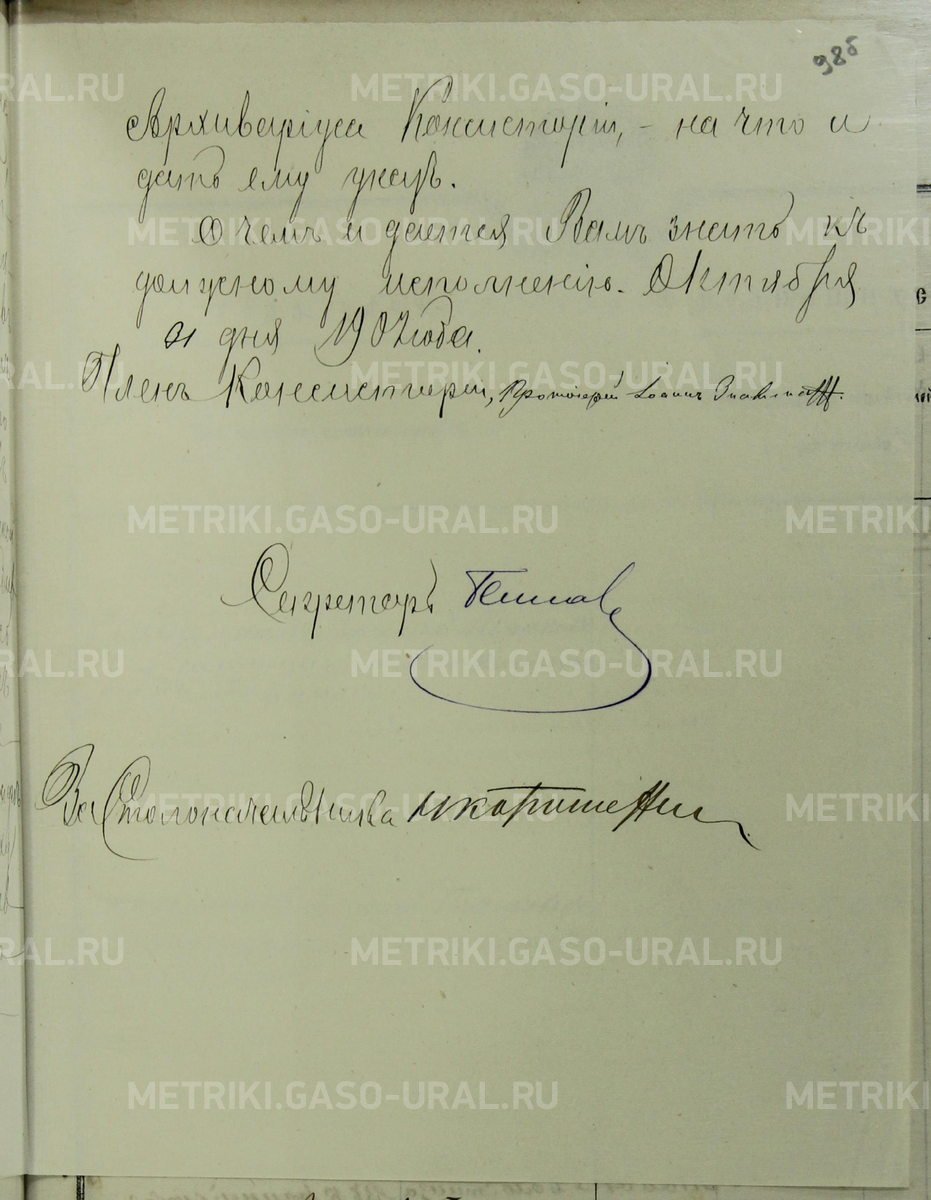 98б
Архиваріуса Консисторіи, - на что и
дать ему указъ.
О чемъ и дается Вамъ знать къ
должному исполненію. Октября
21 дня 1902 года.
Членъ Консисторіи, Протоіерей Іоаннъ
Секретарь
За Столоначальника
METRIKI.GASO-URAL.RU